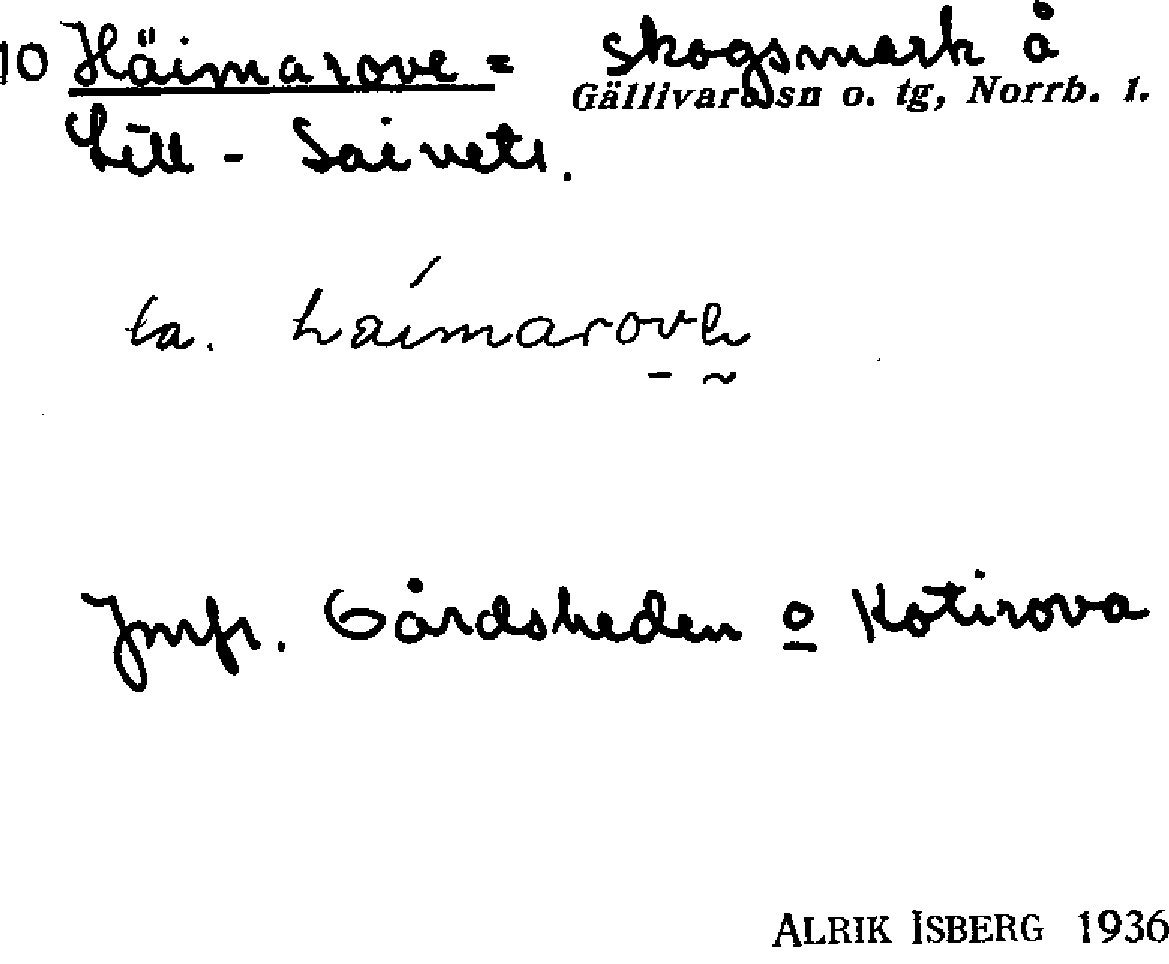 10 Häimarove = skogsmark å
Gällivare sn o. tg, Norrb. l.
Lill - Saivets.
la. háimarove
Jmfr. Gårdsheden o Kotirova
ALRIK ISBERG 1936